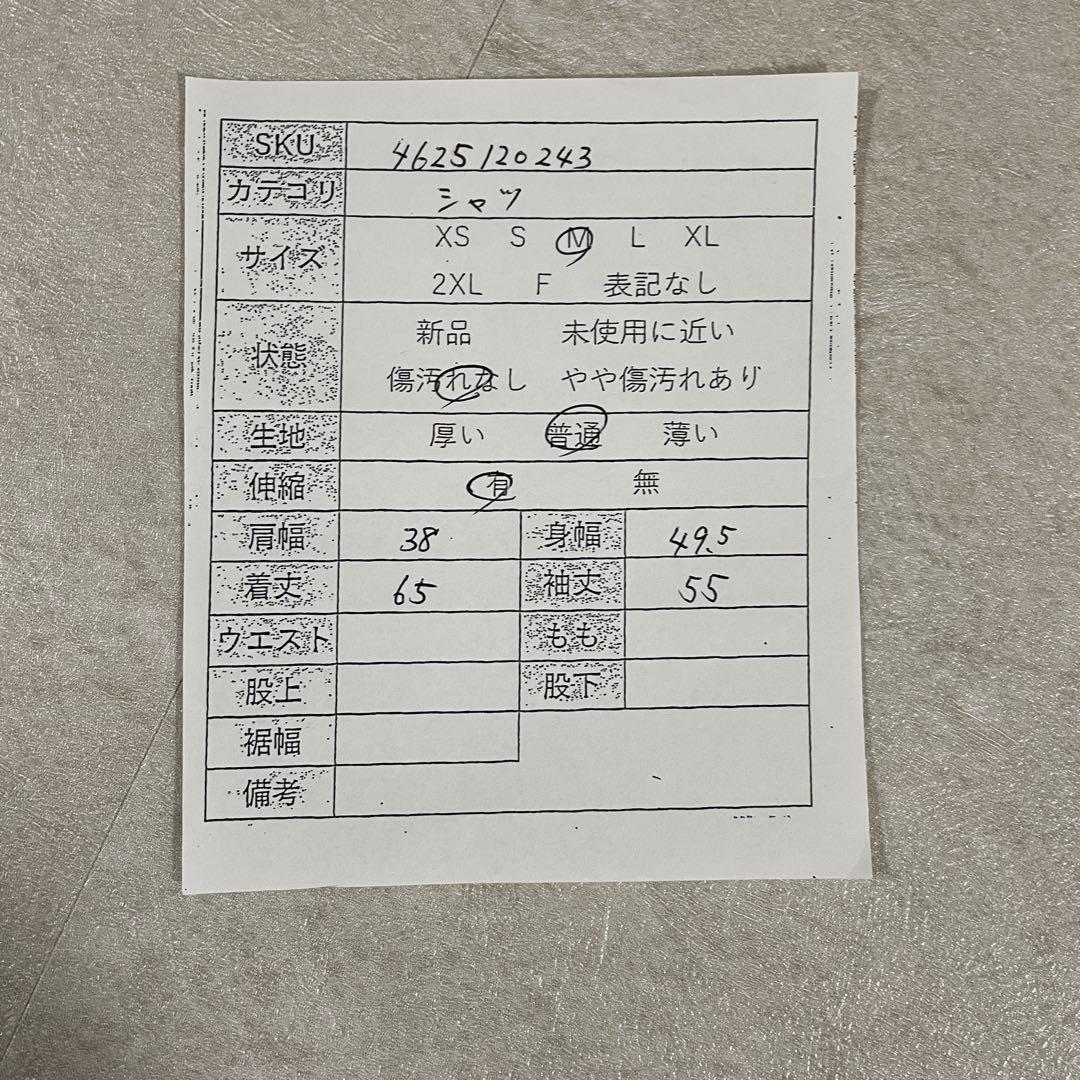 SKU 4625120243
カテゴリ シャツ
サイズ XS S M L XL
2XL F 表記なし
状態 新品 未使用に近い
傷汚れなし やや傷汚れあり
生地 厚い 普通 薄い
伸縮 有 無
肩幅 38 身幅 49.5
着丈 65 袖丈 55
ウエスト もも
股上 股下
裾幅
備考